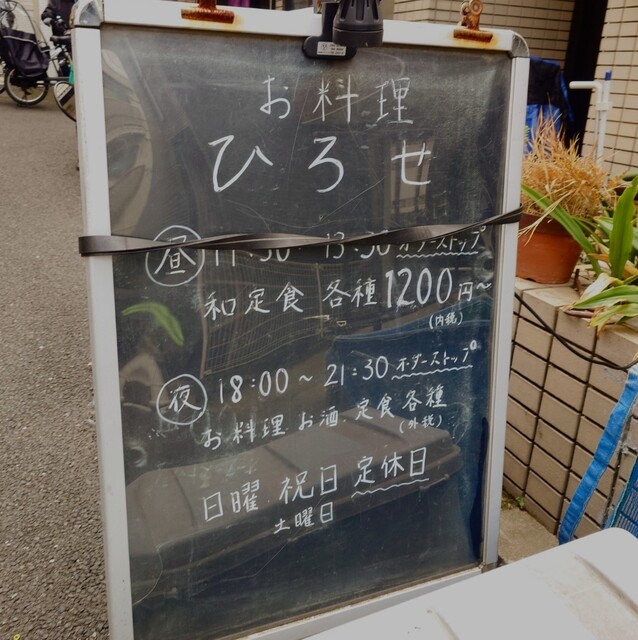 お料理
ひろせ
昼 11:30 13:30 オーダーストップ
和定食 各種 1200円~
(内税)
夜 18:00 ~ 21:30 オーダーストップ
お料理、お酒、定食 各種
(外税)
日曜 祝日 定休日
土曜日